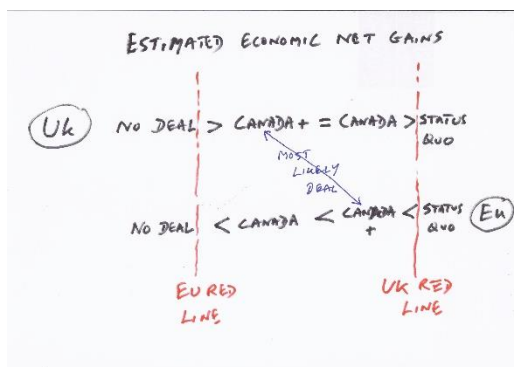 ESTIMATED ECONOMIC NET GAINS
UK NO DEAL > CANADA + = CANADA > STATUS QUO
MOST
LIKELY
DEAL
NO DEAL < CANADA < CANADA + < STATUS QUO EU
EU RED
LINE
UK RED
LINE